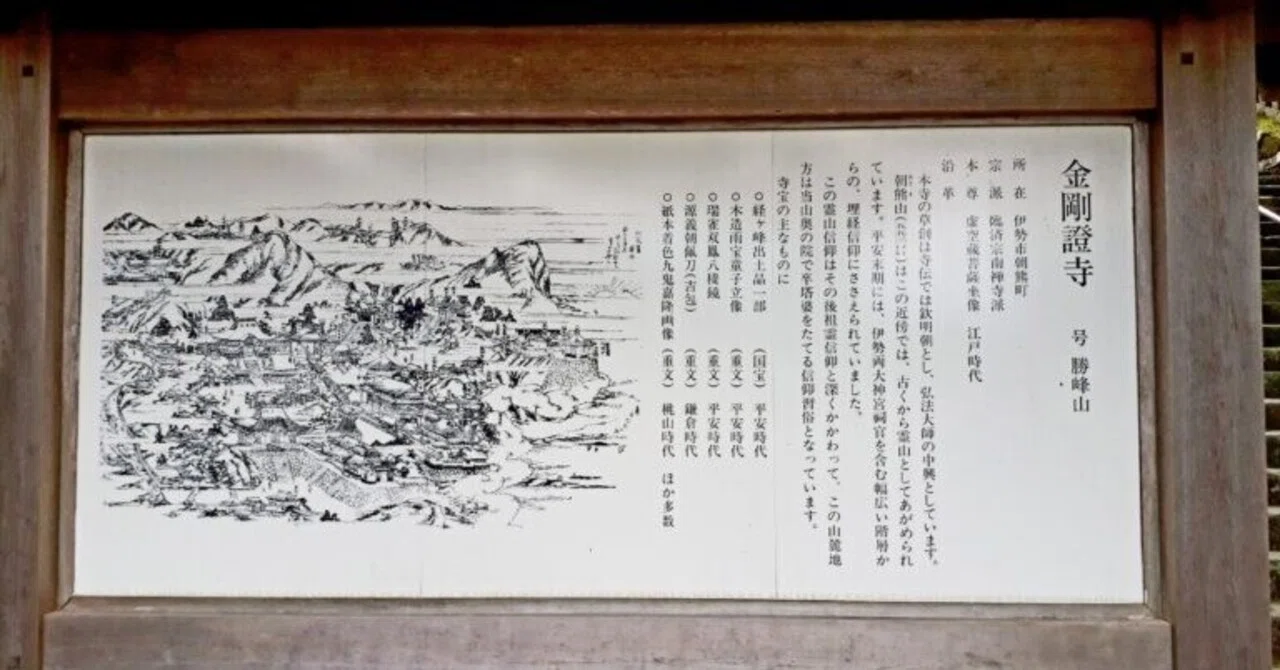 金剛證寺 号 勝峰山
所在 伊勢市朝熊町
宗派 臨済宗南禅寺派
本尊 虚空蔵菩薩坐像 江戸時代
沿革
本寺の草創は寺伝では欽明朝とし、弘法大師の中興としています。
朝熊山はこの近傍では、古くから霊山としてあがめられ
ています。平安末期には、伊勢両大神宮祠官を含む幅広い階層か
らの、埋経信仰にささえられていました。
この霊山信仰はその後祖霊信仰と深くかかわって、この山麓地
方は当山奥の院で卒塔婆をたてる信仰習俗となっています。
寺宝の主なものに
○経ヶ峰出土品一部 (国宝) 平安時代
○木造雨宝童子立像 (重文) 平安時代
○瑞雀双鳳八稜鏡 (重文) 平安時代
○源義朝佩刀(吉包) (重文) 鎌倉時代
○紙本着色九鬼嘉隆画像 (重文) 桃山時代 ほか多数